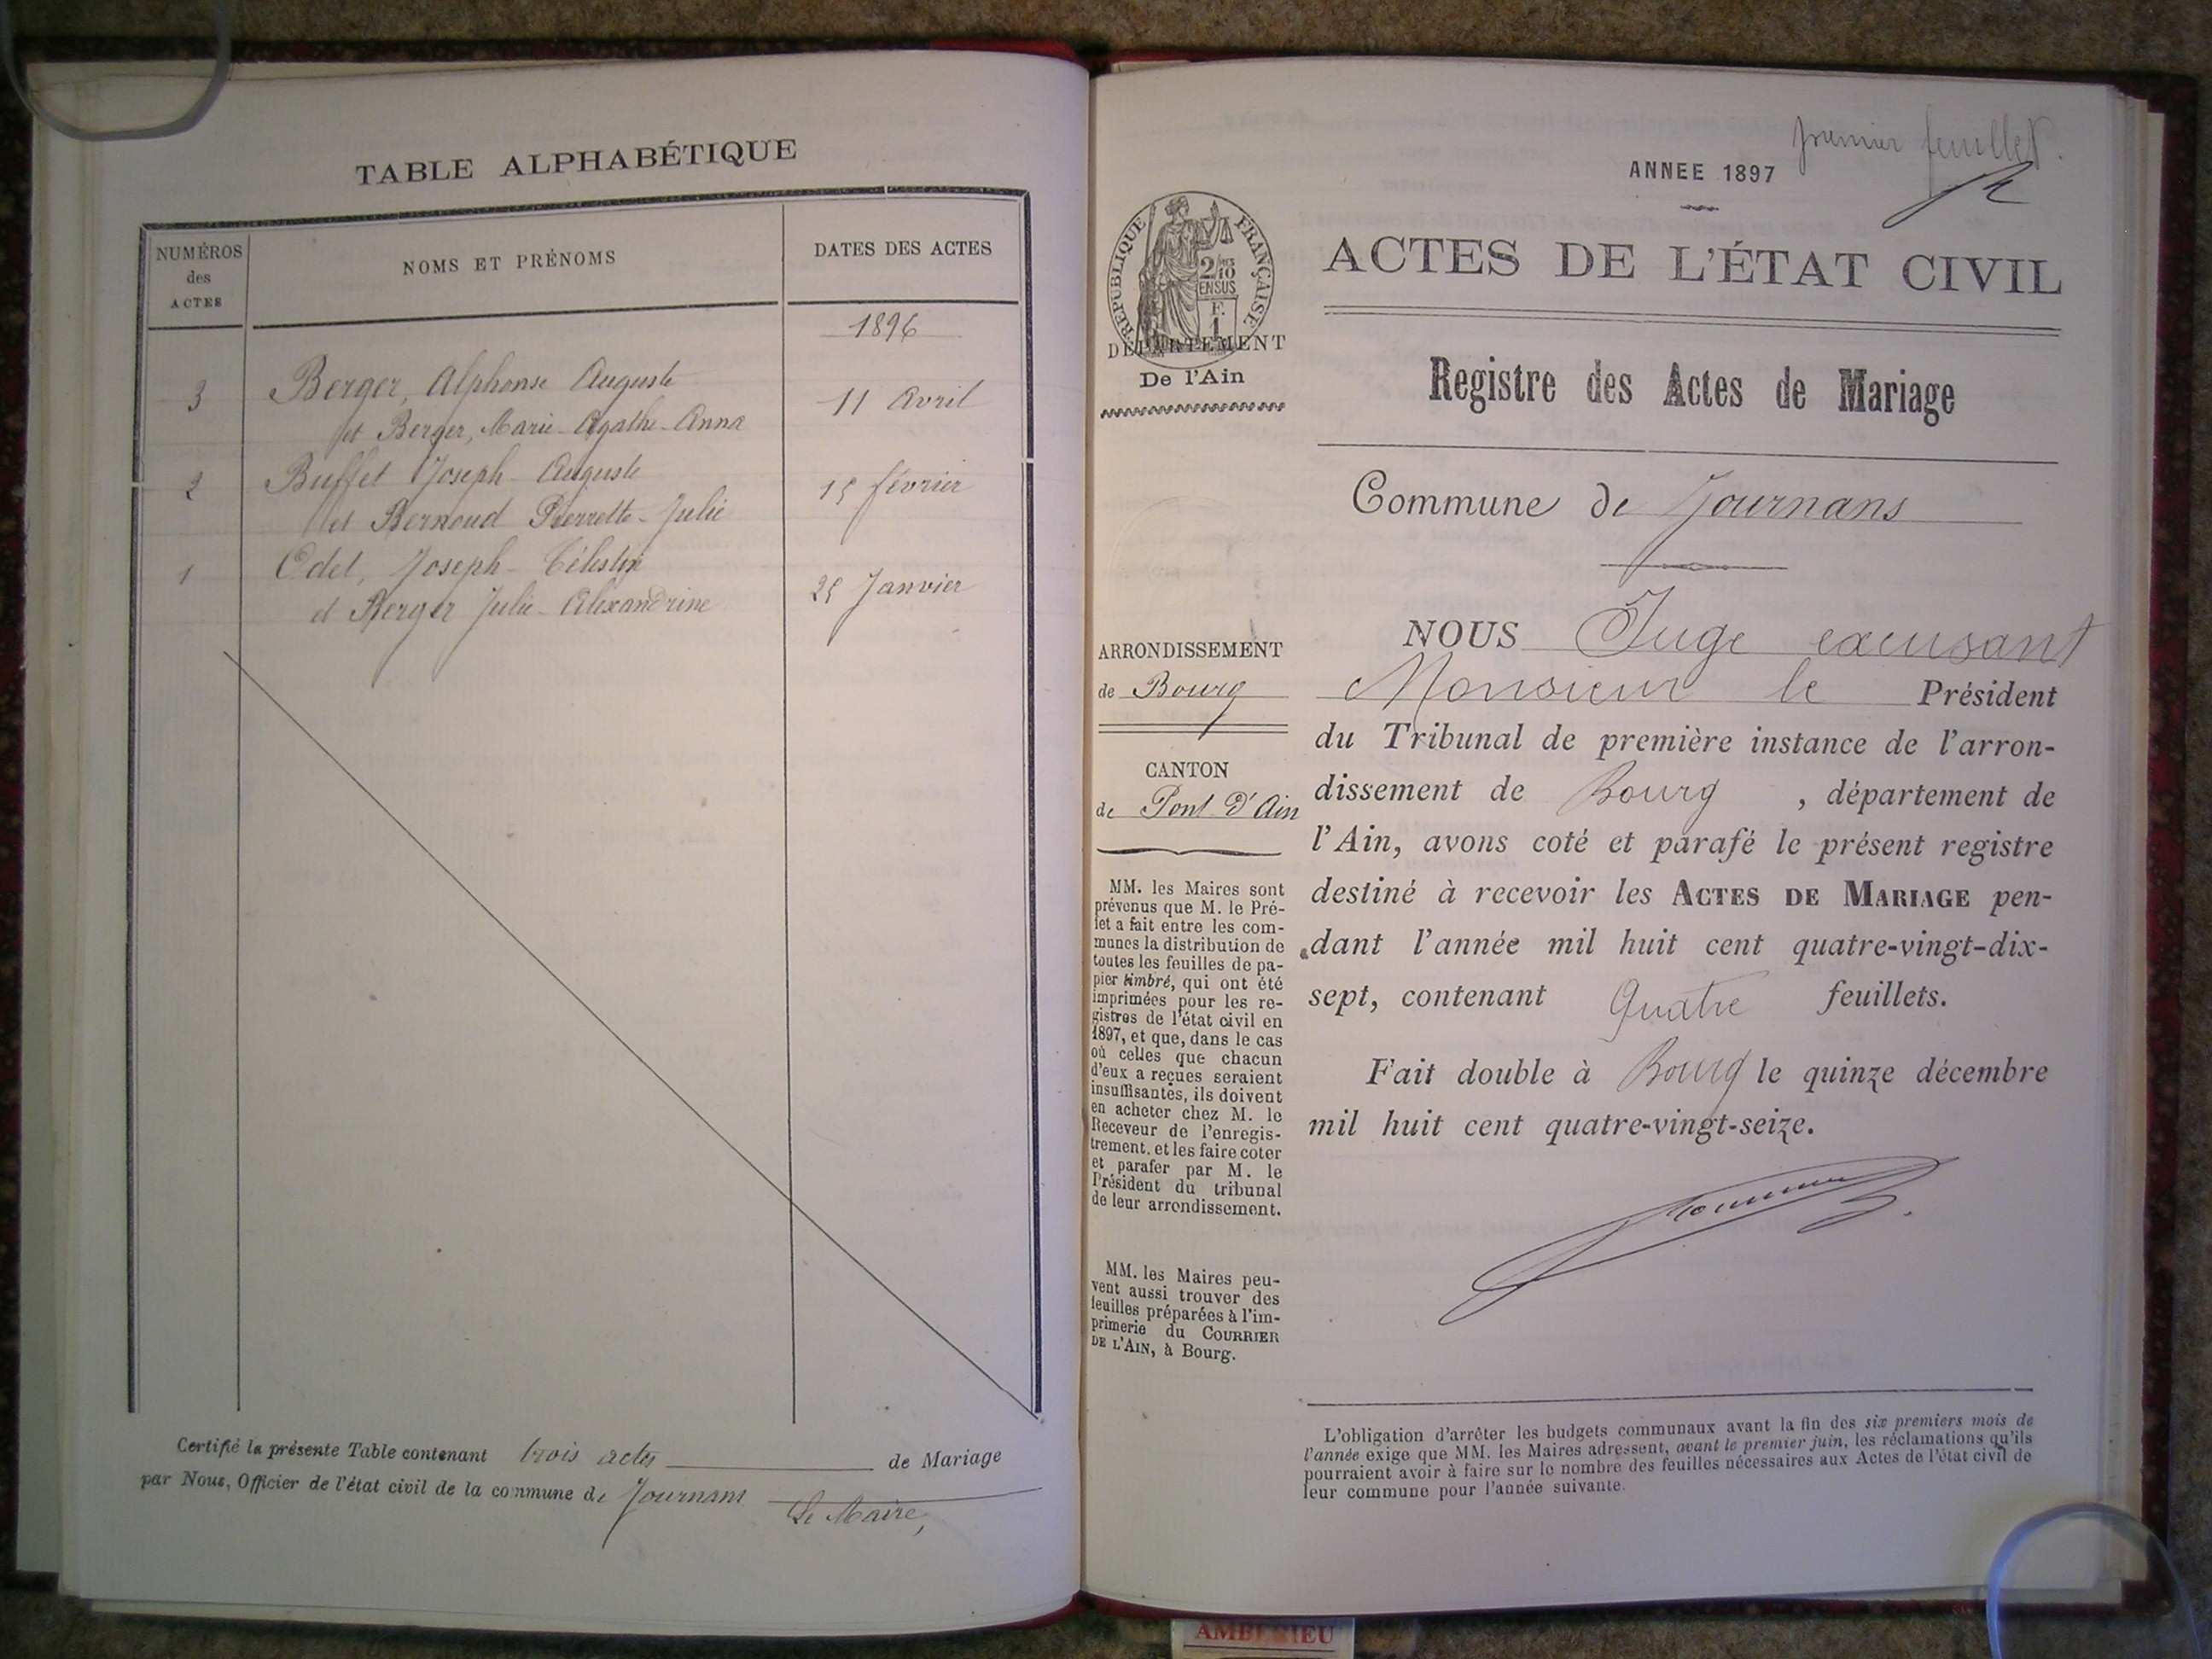 TABLE ALPHABÉTIQUE
NUMÉROS
des
ACTES
NOMS ET PRÉNOMS
DATES DES ACTES
1896
3 Berger, Alphonse Auguste
et Berger, Marie-Agathe-Anna
11 Avril
2 Buffet Joseph-Auguste
et Bernoud Pierrette-Julie
15 février
1 Odet, Joseph-Célestin
et Berger Julie-Alexandrine
25 Janvier
Certifié la présente Table contenant trois actes de Mariage
par Nous, Officier de l'état civil de la commune de Journans
Le Maire,
premier feuillet.
ANNEE 1897
RÉPUBLIQUE FRANÇAISE
2/10
EN SUS
F.
1
DÉPARTEMENT
De l'Ain
ACTES DE L'ÉTAT CIVIL
Registre des Actes de Mariage
Commune de Journans
ARRONDISSEMENT
de Bourg
CANTON
de Pont D'Ain
MM. les Maires sont
prévenus que M. le Pré-
fet a fait entre les com-
munes la distribution de
toutes les feuilles de pa-
pier timbré, qui ont été
imprimées pour les re-
gistres de l'état civil en
1897, et que, dans le cas
où celles que chacun
d'eux a reçues seraient
insuffisantes, ils doivent
en acheter chez M. le
Receveur de l'enregis-
trement, et les faire coter
et parafer par M. le
Président du tribunal
de leur arrondissement.
MM. les Maires peu-
vent aussi trouver des
feuilles préparées à l'im-
primerie du COURRIER
DE L'AIN, à Bourg.
NOUS Juge excusant
Monsieur le Président
du Tribunal de première instance de l'arron-
dissement de Bourg, département de
l'Ain, avons coté et parafé le présent registre
destiné à recevoir les ACTES DE MARIAGE pen-
dant l'année mil huit cent quatre-vingt-dix-
sept, contenant Quatre feuillets.
Fait double à Bourg le quinze décembre
mil huit cent quatre-vingt-seize.
L'obligation d'arrêter les budgets communaux avant la fin des six premiers mois de
l'année exige que MM. les Maires adressent, avant le premier juin, les réclamations qu'ils
pourraient avoir à faire sur le nombre des feuilles nécessaires aux Actes de l'état civil de
leur commune pour l'année suivante.
AMBERIEU